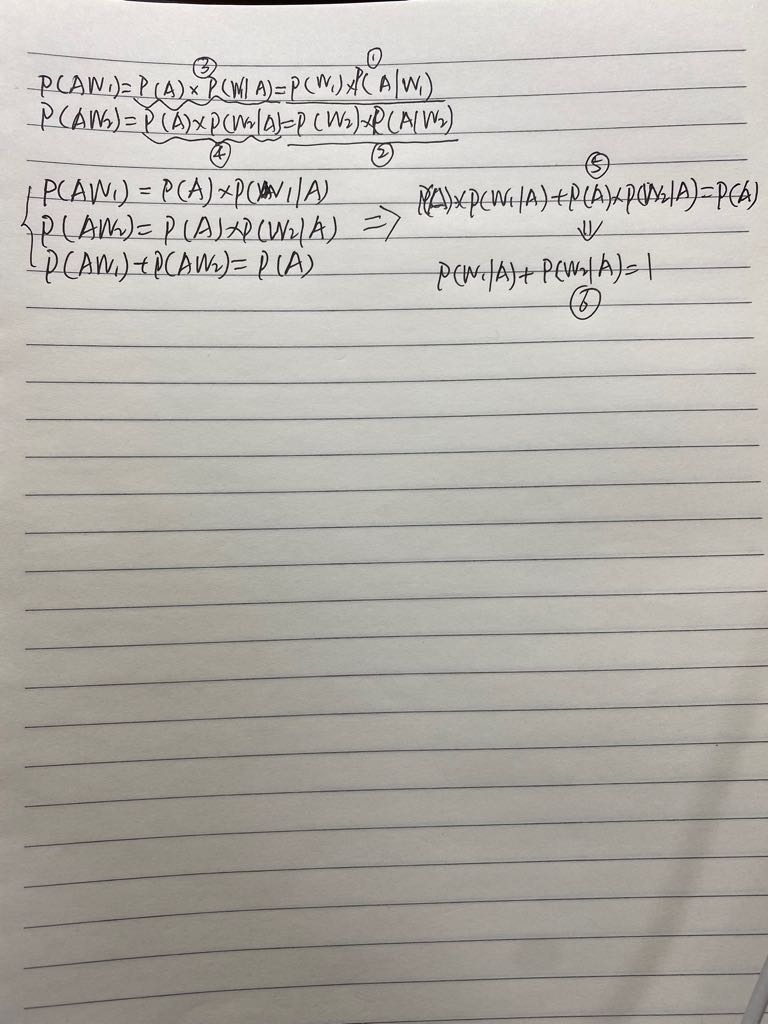 ③ ①
P(AW₁)=P(A)×P(W|A)=P(W₁)×P(A|W₁)
P(AW₂)=P(A)×P(W₂|A)=P(W₂)×P(A|W₂)
④ ②
⑤
P(AW₁)=P(A)×P(W₁|A)
P(AW₂)=P(A)×P(W₂|A) => P(A)×P(W₁|A)+P(A)×P(W₂|A)=P(A)
⇓
P(AW₁)+P(AW₂)=P(A)
P(W₁|A)+P(W₂|A)=1
⑥